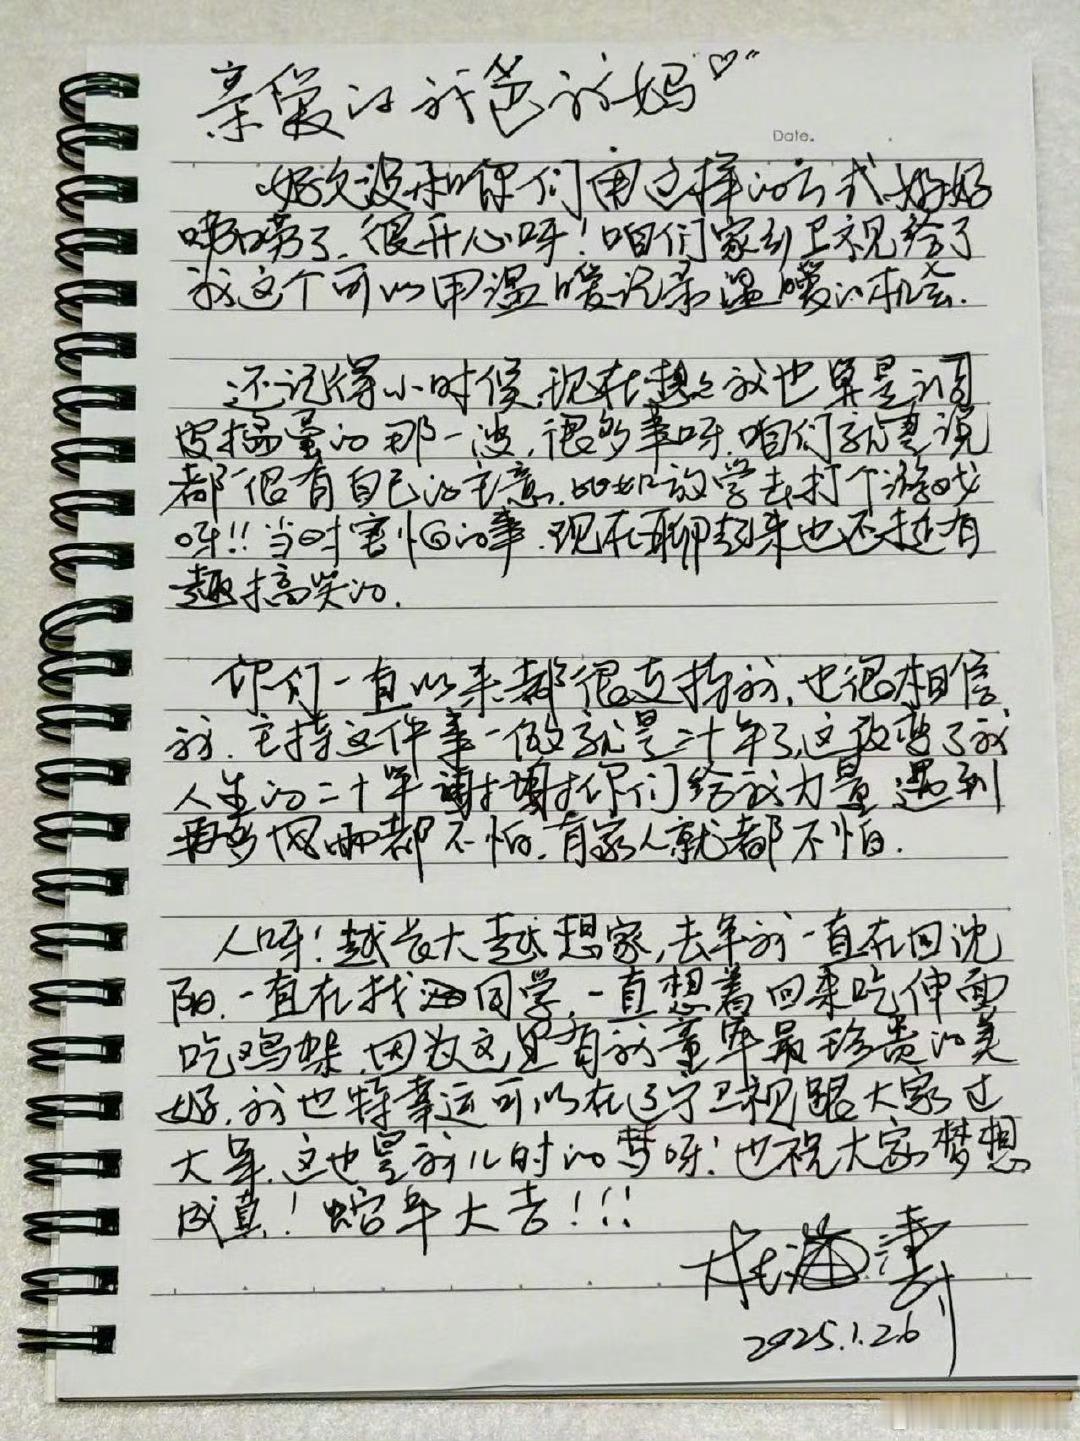 亲爱的我爸我妈
Date.
好久没和你们用这样的方式好好
唠唠了，很开心呀！咱们家乡卫视给了
我这个可以用温暖记录温暖的机会.
还记得小时候，现在想想我也算是调
皮捣蛋的那一波，很多事呀，咱们就是说
都很有自己的主意，比如放学去打个游戏
呀!!当时害怕的事，现在聊起来也还挺有
趣搞笑的.
你们一直以来都很支持我，也很相信
我，主持这件事一做就是二十年了，这改变了我
人生的二十年 谢谢你们给我力量 遇到
再多风雨都不怕，有家人就都不怕.
人呀！越长大越想家，去年我一直在回沈
阳，一直在找同学，一直想着回来吃抻面
吃鸡架，因为这里有我童年最珍贵的美
好，我也特幸运可以在辽宁卫视跟大家过
大年，这也是我儿时的梦呀！也祝大家梦想
成真！蛇年大吉！！！
杜海涛
2025.1.26